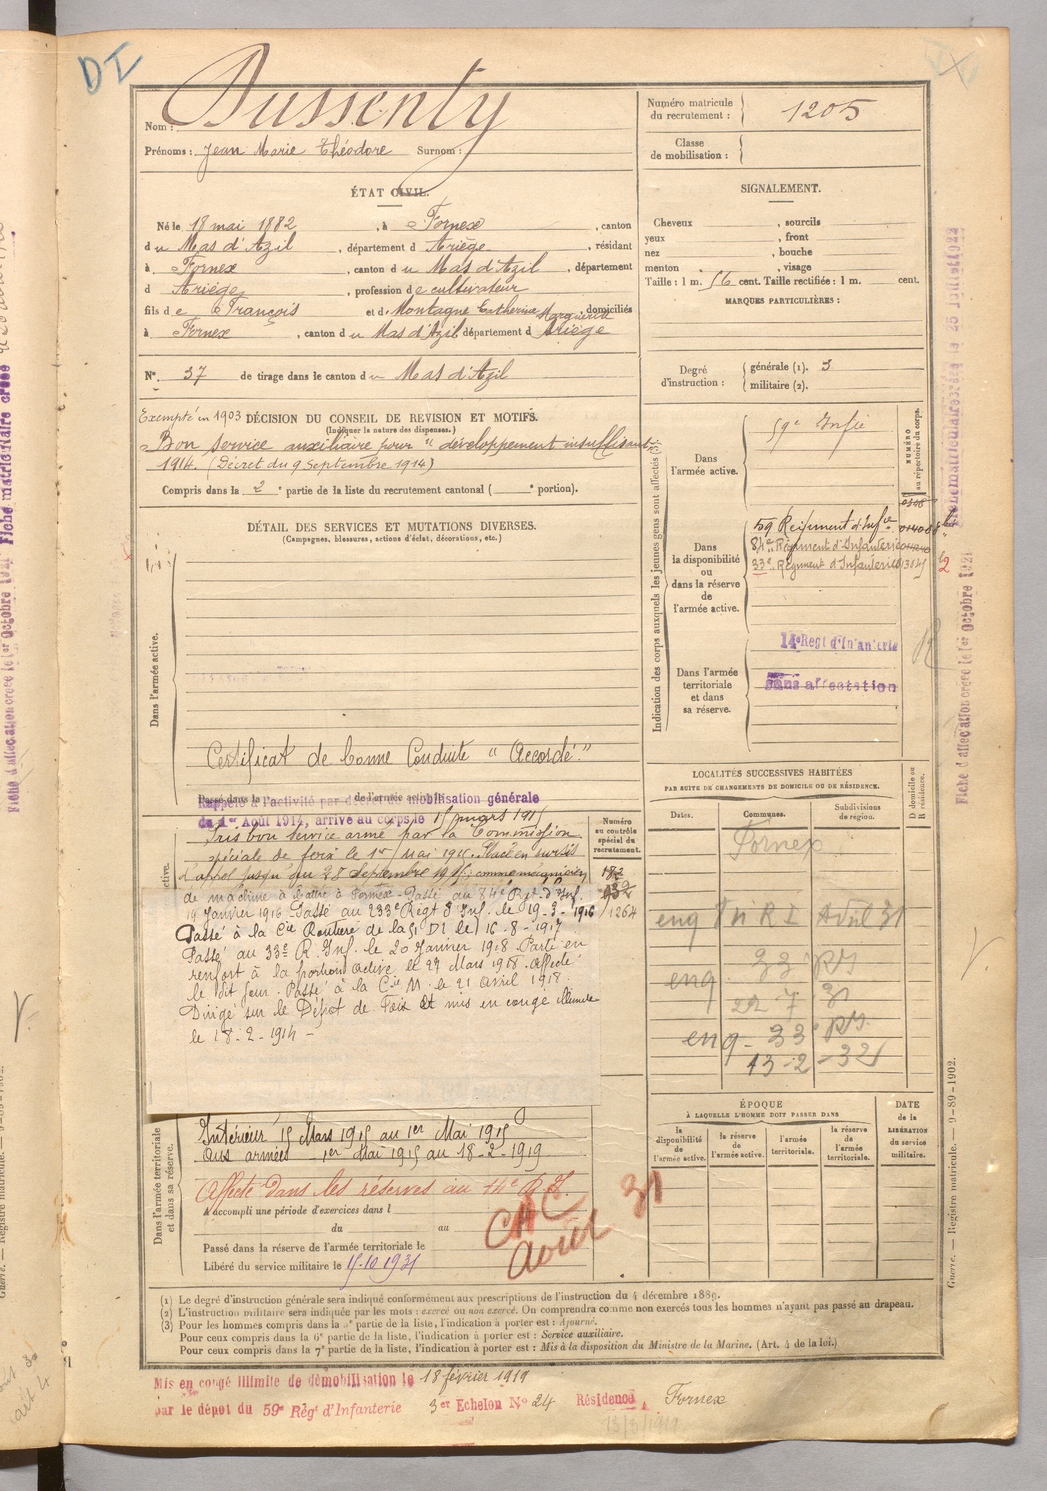 DI
Nom : Dussenty
Prénoms : Jean Marie Théodore Surnom :
Numéro matricule du recrutement : 1205
Classe de mobilisation :
ÉTAT CIVIL.
Né le 18 mai 1882, à Fornex, canton
du Mas d'Azil, département d Ariège, résidant
à Fornex, canton du Mas d'Azil, département
d Ariège, profession de cultivateur
fils de François et de Montagne Catherine Marguerite, domiciliés
à Fornex, canton du Mas d'Azil département d Ariège
N° 37 de tirage dans le canton du Mas d'Azil
SIGNALEMENT.
Cheveux , sourcils
yeux , front
nez , bouche
menton , visage
Taille : 1 m. 56 cent. Taille rectifiée : 1 m. cent.
MARQUES PARTICULIÈRES :
Degré d'instruction : générale (1). 3
militaire (2).
Exempté en 1903 DÉCISION DU CONSEIL DE REVISION ET MOTIFS.
(Indiquer la nature des dispenses.)
Bon service auxiliaire pour "développement insuffisant"
1914. (Décret du 9 Septembre 1914)
Compris dans la 2e partie de la liste du recrutement cantonal ( e portion).
DÉTAIL DES SERVICES ET MUTATIONS DIVERSES.
(Campagnes, blessures, actions d'éclat, décorations, etc.)
Dans l'armée active.
Certificat de bonne Conduite "Accordé"
Passé dans la de l'armée active
Rappelé à l'activité par décret de mobilisation générale
du 1er Août 1914, arrivé au corps le 15 mars 1915
Pris bon service armé par la Commission
spéciale de foix le 1er mai 1915. Placé en sursis
d'appel jusqu'au 28 Septembre 1915; comme mécanicien
de machine à battre à Fornex. Passé au 84e Rgt. d'Inf.
19 Janvier 1916 Passé au 233e Régt d'Inf. le 19-3-1916
Passé à la Cie Routière de la 51 DI le 16-8-1917
Passé au 33e R. Inf. le 20 Janvier 1918 Parti en
renfort à la portion active le 27 Mars 1918. Affecté
le dit jour. Passé à la Cie M. le 21 avril 1918.
Dirigé sur le Dépôt de Foix et mis en congé illimité
le 18-2-1914 -
Numéro au contrôle spécial du recrutement.
1264
Indication des corps auxquels les jeunes gens sont affectés
NUMÉRO au répertoire du corps.
Dans l'armée active.
59e Infie
Dans la disponibilité ou dans la réserve de l'armée active.
59 Régiment d'Infie
84e Régiment d'Infanterie
33e Régiment d'Infanterie
Dans l'armée territoriale et dans sa réserve.
14e Regt d'Infanterie
Sans affectation
LOCALITÉS SUCCESSIVES HABITÉES
PAR SUITE DE CHANGEMENTS DE DOMICILE OU DE RÉSIDENCE.
Dates. Communes. Subdivisions de région. D domicile ou R résidence.
Fornex
enq Avril 31
enq 33
22 7 31
enq 33e
13-2-32
Dans l'armée territoriale et dans sa réserve.
Intérieur 15 Mars 1915 au 1er Mai 1915
Aux armées 1er Mai 1915 au 18-2-1919
Affecté dans les réserves au 14e R.I.
A accompli une période d'exercices dans l
du au
Passé dans la réserve de l'armée territoriale le
Libéré du service militaire le 15.10.1931
Août 31
ÉPOQUE
À LAQUELLE L'HOMME DOIT PASSER DANS
la disponibilité de l'armée active. la réserve de l'armée active. l'armée territoriale. la réserve de l'armée territoriale.
DATE de la LIBÉRATION du service militaire.
(1) Le degré d'instruction générale sera indiqué conformément aux prescriptions de l'instruction du 4 décembre 1889.
(2) L'instruction militaire sera indiquée par les mots : exercé ou non exercé. On comprendra comme non exercés tous les hommes n'ayant pas passé au drapeau.
(3) Pour les hommes compris dans la 5e partie de la liste, l'indication à porter est : Ajourné.
Pour ceux compris dans la 6e partie de la liste, l'indication à porter est : Service auxiliaire.
Pour ceux compris dans la 7e partie de la liste, l'indication à porter est : Mis à la disposition du Ministre de la Marine. (Art. 4 de la loi.)
Mis en congé illimité de démobilisation le 18 février 1919
par le dépôt du 59e Régt d'Infanterie 3er Echelon N° 24 Résidence Fornex
Guerre. — Registre matricule. — 9-89-1902.
Fiche matriculaire créée le 25 Juillet 1922
Fiche d'affectation créée le 1er Octobre 1921